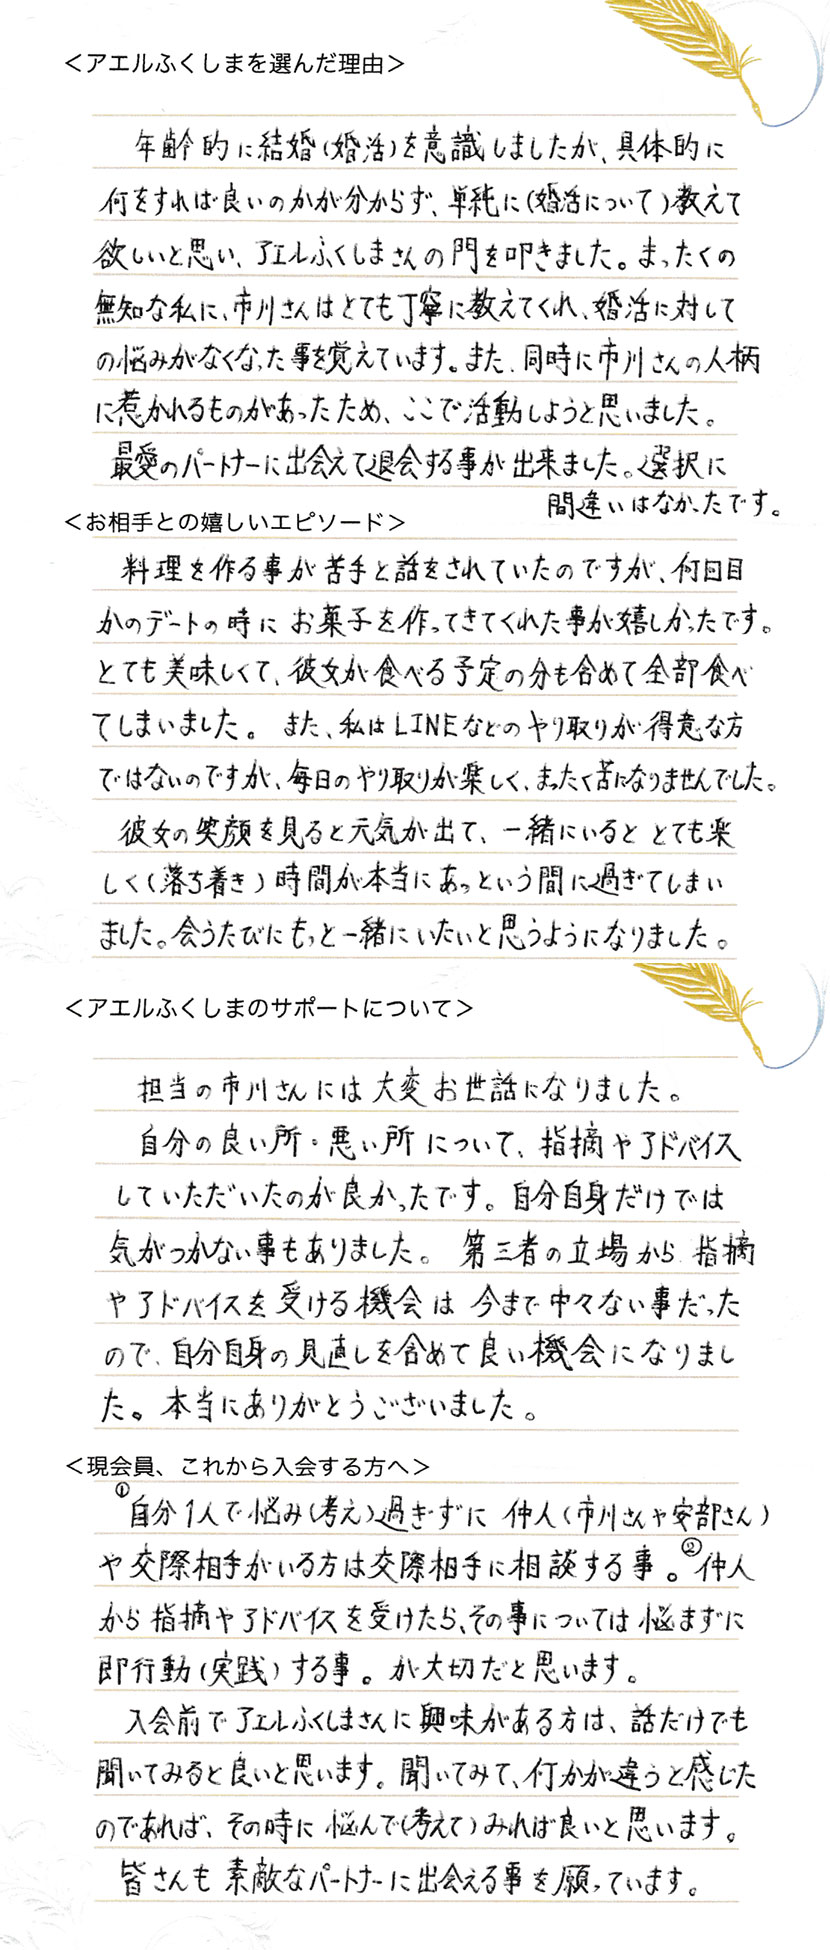 ＜アエルふくしまを選んだ理由＞
年齢的に結婚(婚活)を意識しましたが、具体的に
何をすれば良いのかが分からず、単純に(婚活について)教えて
欲しいと思い、アエルふくしまさんの門を叩きました。まったくの
無知な私に、市川さんはとても丁寧に教えてくれ、婚活に対して
の悩みがなくなった事を覚えています。また、同時に市川さんの人柄
に惹かれるものがあったため、ここで活動しようと思いました。
最愛のパートナーに出会えて退会する事が出来ました。選択に
間違いはなかったです。
＜お相手との嬉しいエピソード＞
料理を作る事が苦手と話をされていたのですが、何回目
かのデートの時にお菓子を作ってきてくれた事が嬉しかったです。
とても美味しくて、彼女が食べる予定の分も含めて全部食べ
てしまいました。また、私はLINEなどのやり取りが得意な方
ではないのですが、毎日のやり取りが楽しく、まったく苦になりませんでした。
彼女の笑顔を見ると元気が出て、一緒にいるととても楽
しく(落ち着き)時間が本当にあっという間に過ぎてしまい
ました。会うたびにもっと一緒にいたいと思うようになりました。
＜アエルふくしまのサポートについて＞
担当の市川さんには大変お世話になりました。
自分の良い所・悪い所について、指摘やアドバイス
していただいたのが良かったです。自分自身だけでは
気がつかない事もありました。第三者の立場から指摘
やアドバイスを受ける機会は今まで中々ない事だった
ので、自分自身の見直しを含めて良い機会になりまし
た。本当にありがとうございました。
＜現会員、これから入会する方へ＞
①自分1人で悩み(考え)過ぎずに仲人(市川さんや安部さん)
や交際相手がいる方は交際相手に相談する事。②仲人
から指摘やアドバイスを受けたら、その事については悩まずに
即行動(実践)する事。が大切だと思います。
入会前でアエルふくしまさんに興味がある方は、話だけでも
聞いてみると良いと思います。聞いてみて、何かが違うと感じた
のであれば、その時に悩んで(考えて)みれば良いと思います。
皆さんも素敵なパートナーに出会える事を願っています。